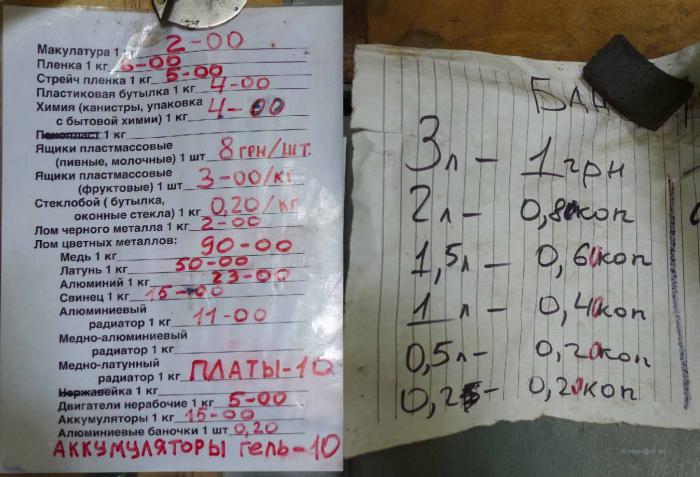 Макулатура 1 2-00
Пленка 1 кг 6-00
Стрейч пленка 1 кг 5-00
Пластиковая бутылка 1 кг 4-00
Химия (канистры, упаковка
с бытовой химии) 1 кг 4-00
Пенопласт 1 кг
Ящики пластмассовые
(пивные, молочные) 1 шт 8 грн/шт.
Ящики пластмассовые
(фруктовые) 1 шт 3-00/кг
Стеклобой ( бутылка,
оконные стекла) 1 кг 0,20/кг
Лом черного металла 1 кг 2-00
Лом цветных металлов:
Медь 1 кг 90-00
Латунь 1 кг 50-00
Алюминий 1 кг 23-00
Свинец 1 кг 15-00
Алюминиевый
радиатор 1 кг 11-00
Медно-алюминиевый
радиатор 1 кг
Медно-латунный
радиатор 1 кг ПЛАТЫ-10
Нержавейка 1 кг
Двигатели нерабочие 1 кг 5-00
Аккумуляторы 1 кг 15-00
Алюминиевые баночки 1 шт 0,20
АККУМУЛЯТОРЫ гель-10
3л - 1 грн
2л - 0,80коп
1,5л - 0,60коп
1л - 0,40коп
0,5л - 0,20коп
0,25 - 0,20коп